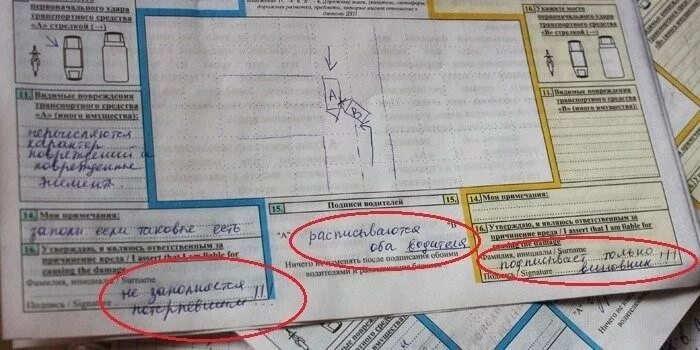 первоначального удара
транспортного средства
"А" стрелкой (→)
11. Видимые повреждения
транспортного средства
"А" (иного имущества):
перечисляются
характер
повреждений и
поврежденные
элемент
14. Мои примечания:
запол если таковые есть
16. Утверждаю, я являюсь ответственным за
причинение вреда / I assert that I am liable for
causing the damage.
Фамилия, инициалы / Surname
Подпись / Signature
не заполняется
потерпевшим !!
дорожная разметка, предметы, которые имеют отношение к
данному ДТП
А
В
15. Подписи водителей 15.
"А"
расписываются
оба водителя
Ничего не изменять после подписания обоими
водителями и разъединения
10. Укажите место
первоначального удара
транспортного средства
"В" стрелкой (→)
11. Видимые повреждения
транспортного средства
"В" (иного имущества):
14. Мои примечания:
16. Утверждаю, я являюсь ответственным за
причинение вреда / I assert that I am liable for
causing the damage.
Фамилия, инициалы / Surname
Подпись / Signature
подписывает только
виновник !!!